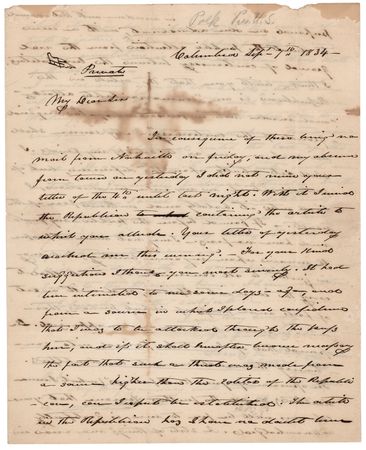 Polk
Columbia Sept 7th 1834
Private
My Dear Sir
In consequence of there being no
mail from Nashville on friday, and my absence
from town on yesterday I did not receive your
letter of the 4th until last night. With it I received
the Republican containing the article to
which you allude. Your letter of yesterday
reached me this evening. For your kind
suggestions I thank you most sincerely. It had
been intimated to me some days ago, and
from a source in which I placed confidence
that I was to be attacked through the press
here, and if it shall hereafter become necessary
the fact that such a threat was made from
a source higher than the editor of the Republi-
can, can I expect be established. The article
in the Republican has I have no doubt been